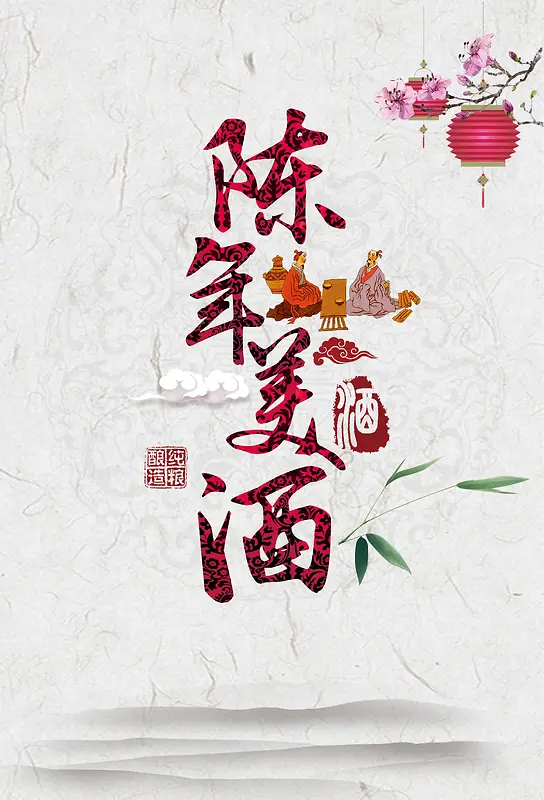 陈年美酒
酒
纯粮
酿造